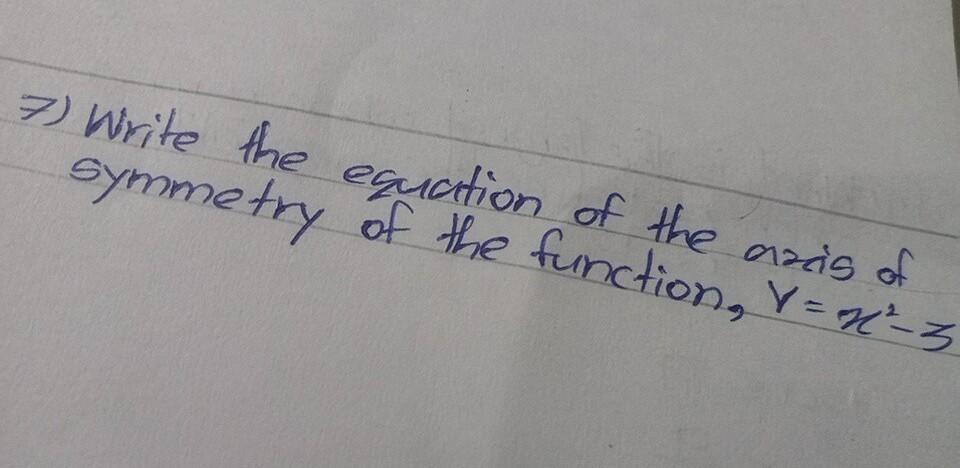 7) Write the equation of the axis of
symmetry of the function, Y = x² - 3